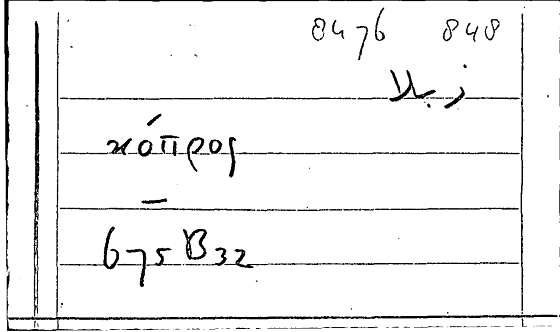 8476 848
زبلا
κόπρος
—
675 B 32